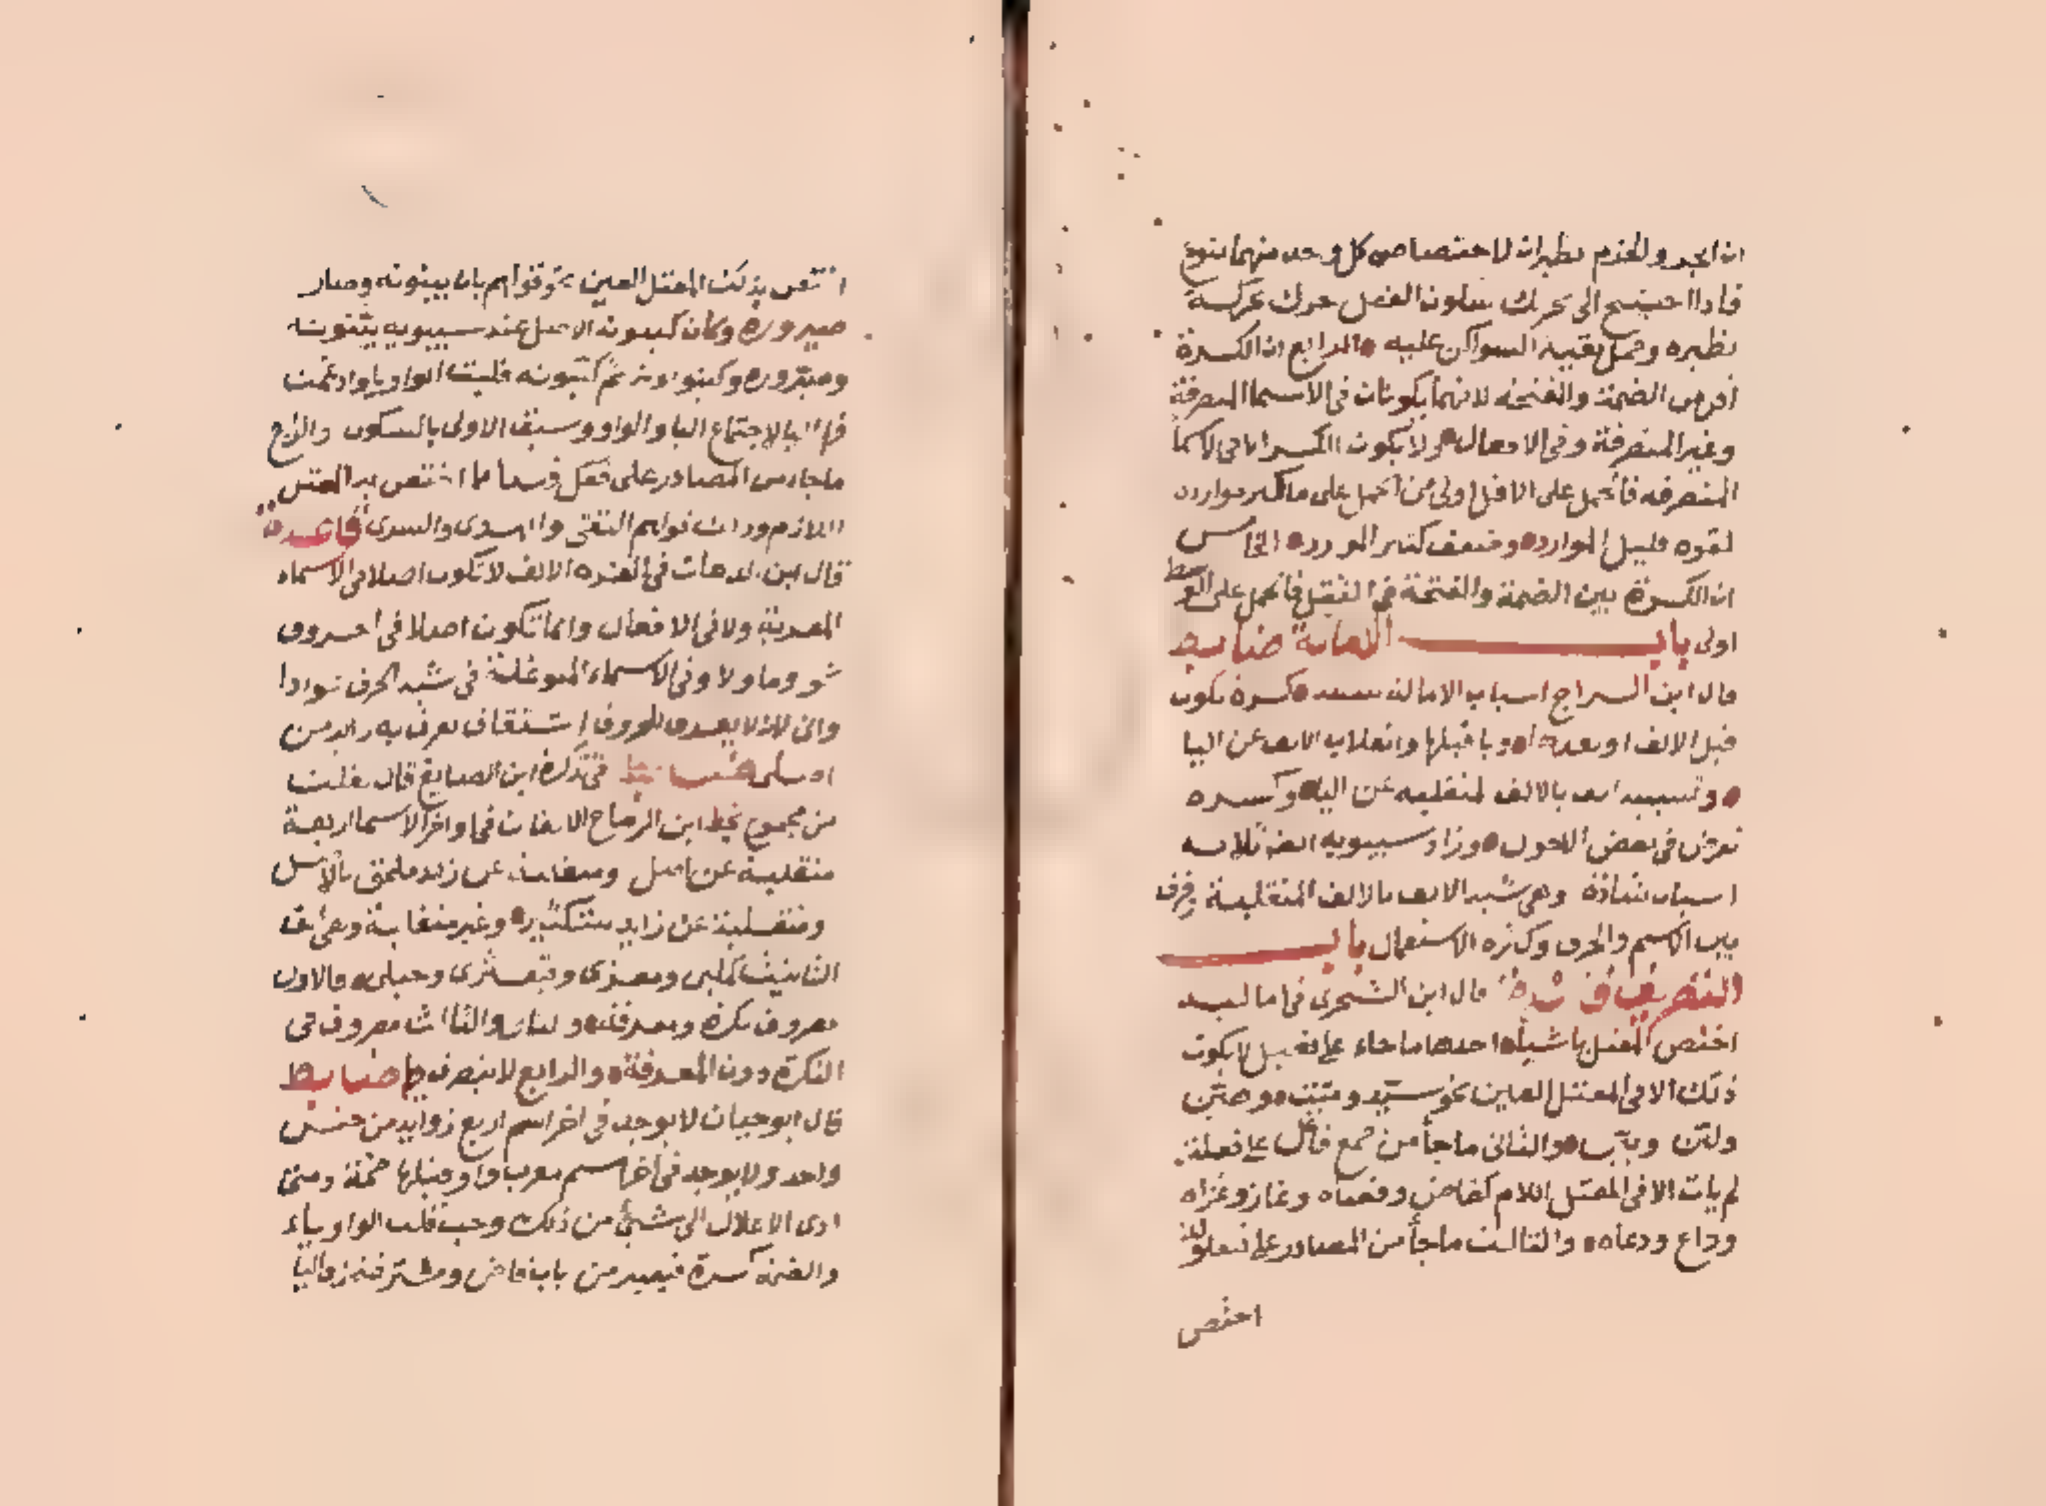 ان الجر والجزم نظيران لاختصاص كل واحد منهما بنوع
فاذا احتيج الى تحريك سكون الفعل حرك بحركة
نظيره وحمل بقية السواكن عليه والرابع ان الكسرة
اقل من الضمة والفتحة لانهما يكونان في الاسما المنصرفة
وغير المنصرفة وفي الافعال ولا يكون الكسر الا في الاسما
المنصرفه فالحمل على الاقل اولى من الحمل على ما كثر موارده
لقوه قليل الموارد وضعف كثير الموارد الخامس
ان الكسرة بين الضمة والفتحة في الثقل فالحمل على الوسط
اولى باب الامالة ضابط
قال ابن السراج اسباب الامالة ستة كسرة تكون
قبل الالف او بعدها وياء قبلها وانقلاب الالف عن اليا
وتشبيه الف بالالف المنقلبه عن اليا وكسره
تعرض في بعض الاحوال وزاد سيبويه ايضا ثلاثه
اسباب شاذة وهي شبه الالف بالالف المنقلبة وفرق
بين الاسم والحرف وكثره الاستعمال باب
التصريف قال ابن الشجري في اماليه
اختص المعتل باشياء احدها ما جاء على فيعل لا يكون
ذلك الا في المعتل العين نحو سيد وميت وهين
ولين وبين والثاني ما جأ من جمع فاعل على فعلة
لم يات الا في المعتل اللام كقاض وقضاه وغاز وغزاه
وداع ودعاه والثالث ماجأ من المصادر على فيعلولة
اختص
اختص بذلك المعتل العين نحو قولهم بان بينونه وصار
صيرورة وكان كينونه الاصل عند سيبويه بيّنونه
وصيّروره وكينونونه ثم كيّنونه قلبت الواو يا وادغمت
فيها اليا لاجتماع اليا والواو وسبق الاولى بالسكون والرابع
ماجاء من المصادر على فعل وسبا مما اختص به المعتل
اللازم وذلك قولهم التقى والهدى والسرى قاعدة
قال ابن الدهان في الغره الالف لا تكون اصلا في الاسماء
المعربة ولا في الافعال وانما تكون اصلا في الحروف
نحو وما ولا وفي الاسماء المتوغلة في شبه الحرف نحو اذا
وانى لان لا يعرف للحروف اشتقاق يعرف به زايد من
اصلي ضابط في تذكرة ابن الصايغ قال نقلت
من مجموع بخط ابن الرماح الالفات في اواخر الاسما اربعة
منقلبة عن اصل ومنقلبة عن زايد ملحق بالاصل
ومنقلبة عن زايد للتكثير وغير منقلبة وهي الف
التانيث كملهى ومعزى وقبعثرى وحبلى فالاول
مصروف نكرة ومعرفة والثاني والثالث مصروف في
النكرة دون المعرفة والرابع لا ينصرف ضابط
قال ابو حيان لا يوجد في اخر اسم اربع زوايد من جنس
واحد ولا يوجد في اخر اسم معرب واو قبلها ضمة ومتى
ادى الاعلال الى شئ من ذلك وجب قلب الواو ياء
والضمة كسرة فيصير من باب قاض ومشتر